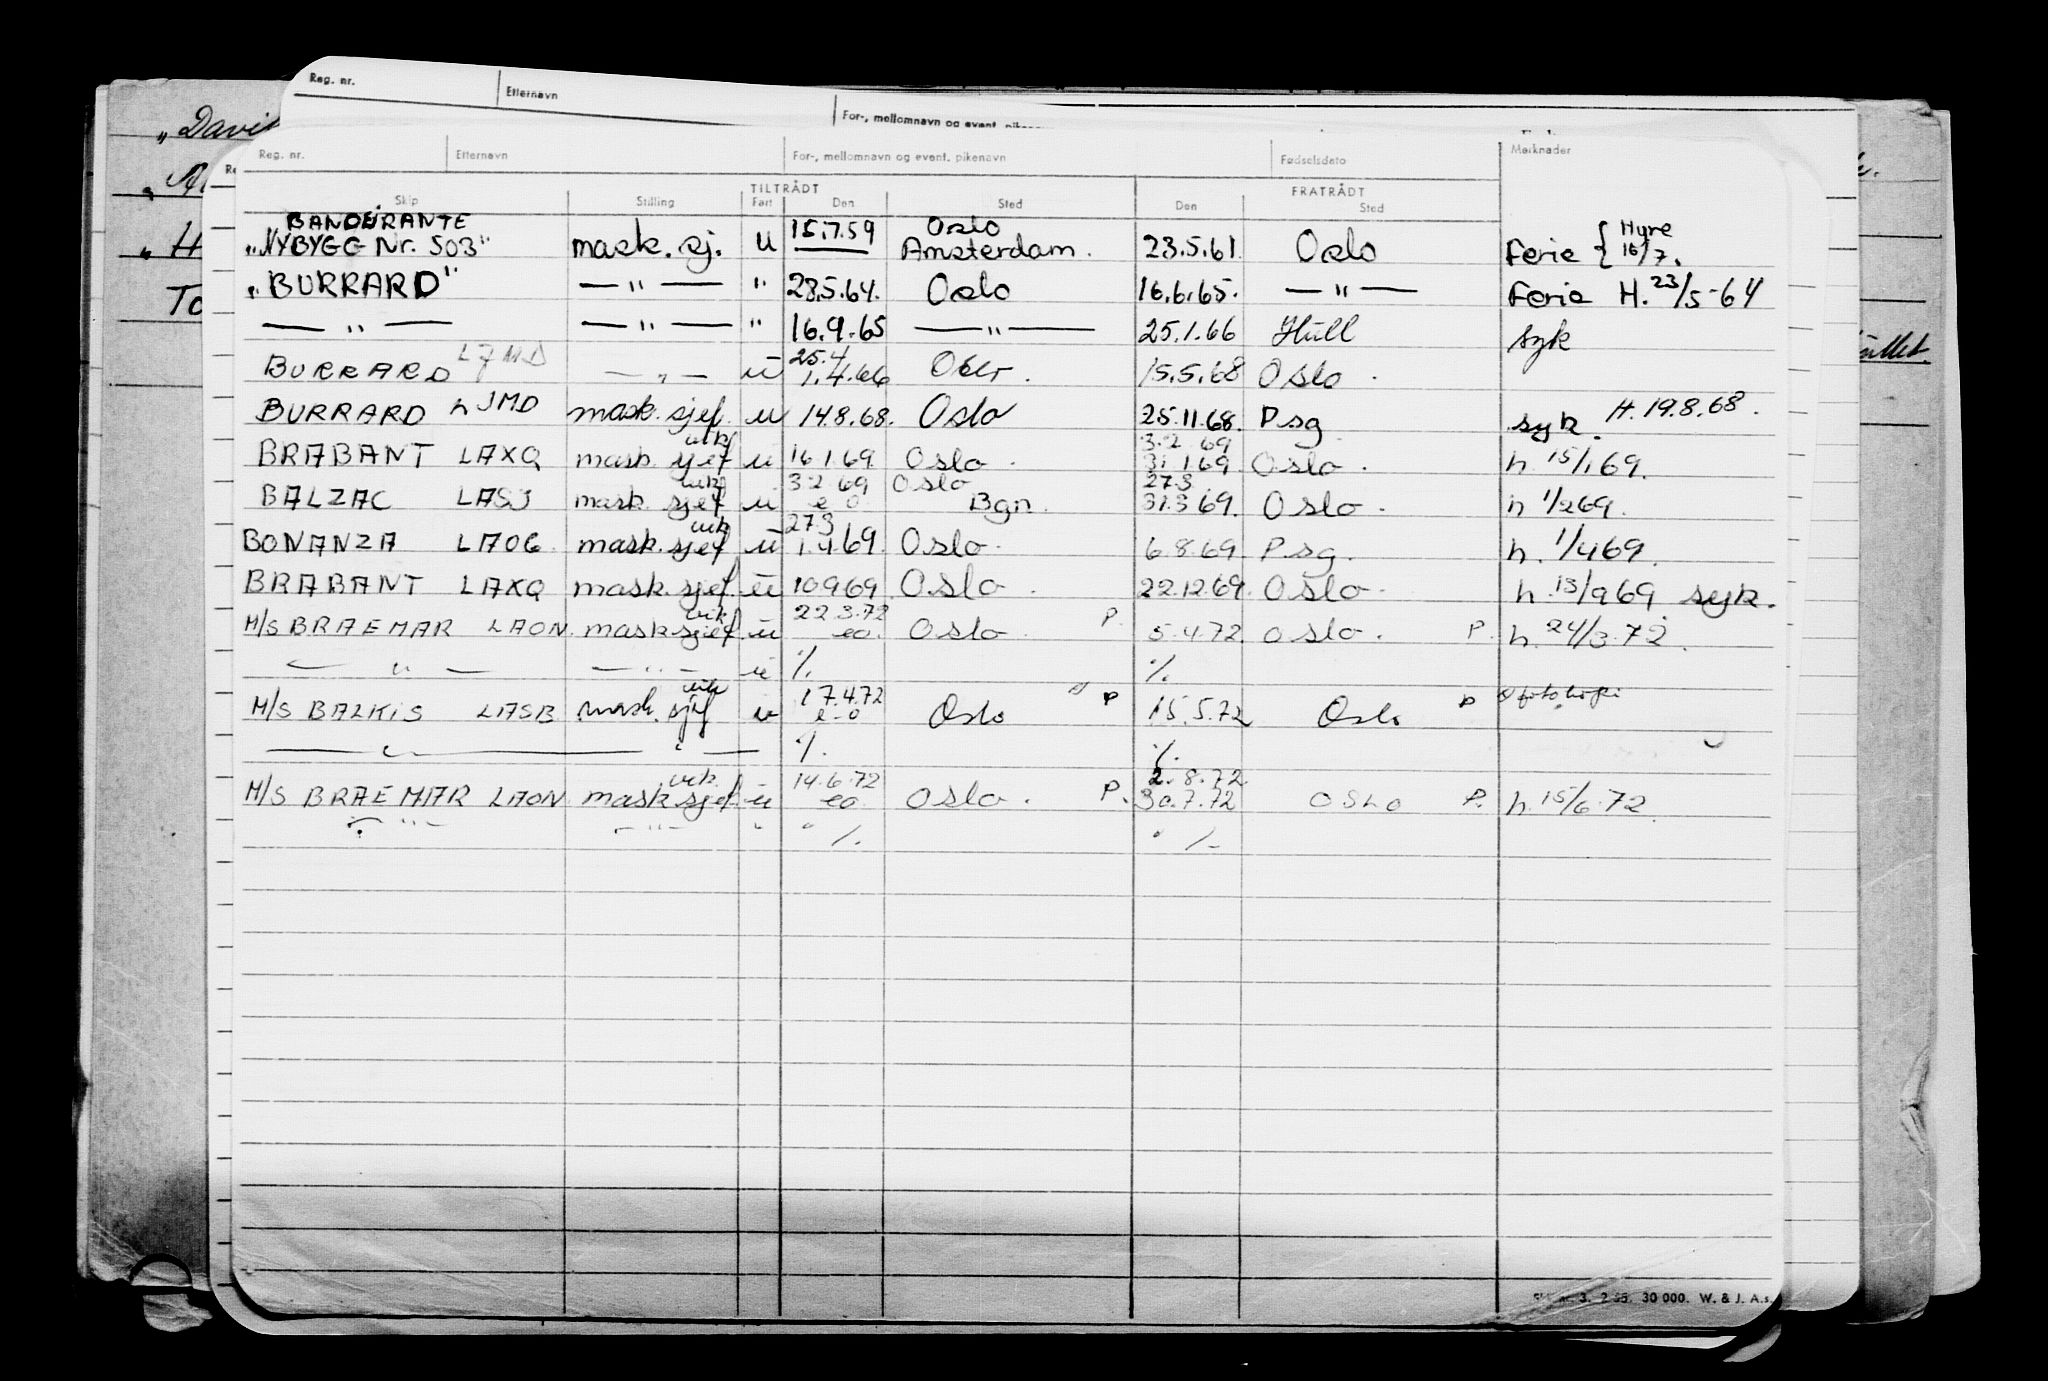 Reg. nr. Etternavn For-, mellomnavn og event.
„Davi
Reg. nr. Etternavn For-, mellomnavn og event. pikenavn Fødselsdato Merknader
TILTRÅDT FRATRÅDT
Skip Stilling Fart Den Sted Den Sted
BANDEIRANTE 15.7.59 Oslo Hyre
"NYBYGG Nr. 503" mask. sj. u Amsterdam. 23.5.61 Oslo Ferie { 16/7.
"BURRARD" — " — " 28.5.64. Oslo 16.6.65. — " — Ferie H. 23/5-64
— " — — " — " 16.9.65 — " — 25.1.66 Hull syk
25.4
BURRARD LJMD — " — u 1.4.66 Oslo. 15.5.68 Oslo.
BURRARD LJMD mask. sjef u 14.8.68. Oslo 25.11.68. Psg syk. H. 19.8.68.
vik 3.2.69
BRABANT LAXQ mask. sjef u 16.1.69 Oslo. 31.1.69 Oslo. h. 15/1 69.
vik 3.2.69 Oslo 27.3
BALZAC LASJ mask. sjef u e.o. Bgn. 31.3.69. Oslo. h 1/2 69.
vik 27.3
BONANZA LAOG mask. sjef u 1.4.69. Oslo. 6.8.69 Psg. h. 1/4 69.
BRABANT LAXQ mask. sjef u 10.9.69 Oslo. 22.12.69. Oslo. h. 13/9 69 syk.
vik 22.3.72
M/S BRAEMAR LAON mask sjef u eo. Oslo. P. 5.4.72 Oslo. P. h. 24/3.72.
— " — — " — u ⁒ ⁒
vik 17.4.72
M/S BALKIS LASB mask. sjef u e-o Oslo P 15.5.72 Oslo P
— " — " — ⁒ ⁒
vik. 14.6.72 2.8.72
M/S BRAEMAR LAON mask sjef u eo. Oslo. P. 30.7.72 OSLO P. h. 15/6.72.
— " — — " — " " ⁒ " ⁒
30 000. W. & J. A.s.